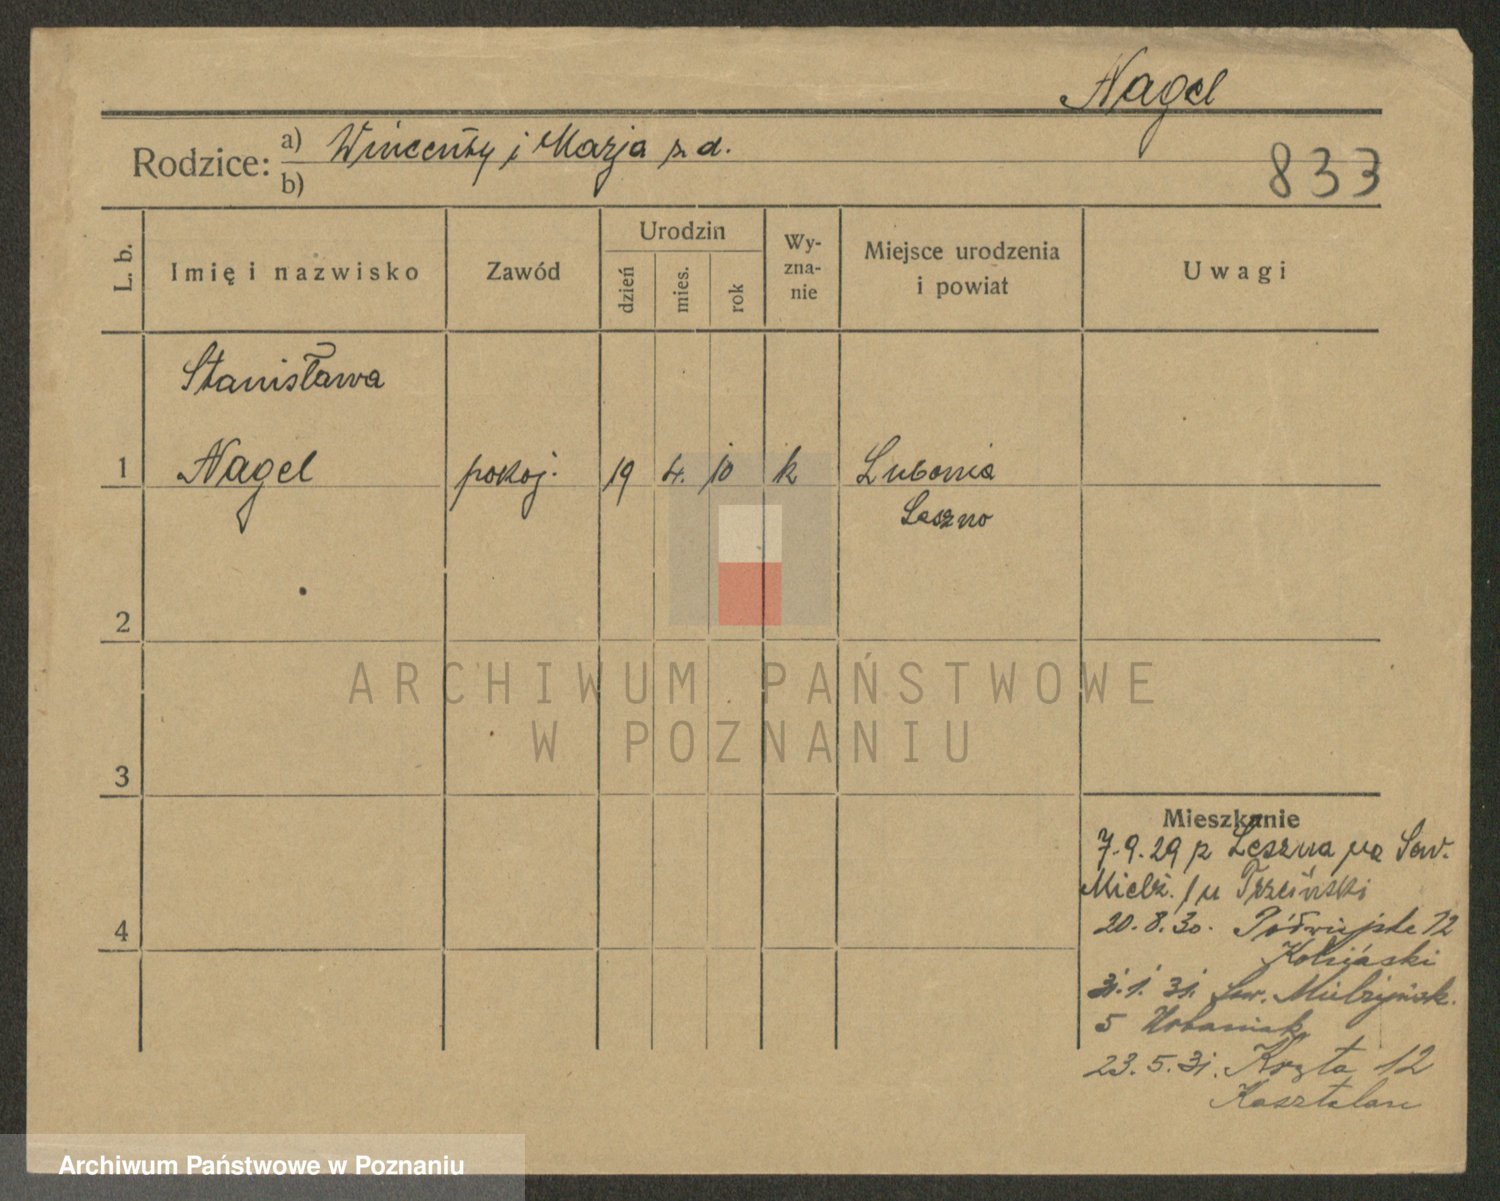 Nagel
Rodzice: a) Wincenty i Marja z. d.
b)
833
L. b.
Imię i nazwisko
Zawód
Urodzin
dzień
mies.
rok
Wy-
zna-
nie
Miejsce urodzenia
i powiat
Uwagi
Stanisława
1 Nagel pokoj. 19 4. 10 k Lubonia
Leszno
2
ARCHIWUM PAŃSTWOWE
W POZNANIU
3
Mieszkanie
7.9.29 z Leszna na Sew.
Mielż. 1 u Trzciński
4
20.8.30. Półwiejska 12
31.1.31. Sew. Mielżyńsk.
5 Urbaniak
23.5.31. Kręta 12
Kasztelan
Archiwum Państwowe w Poznaniu